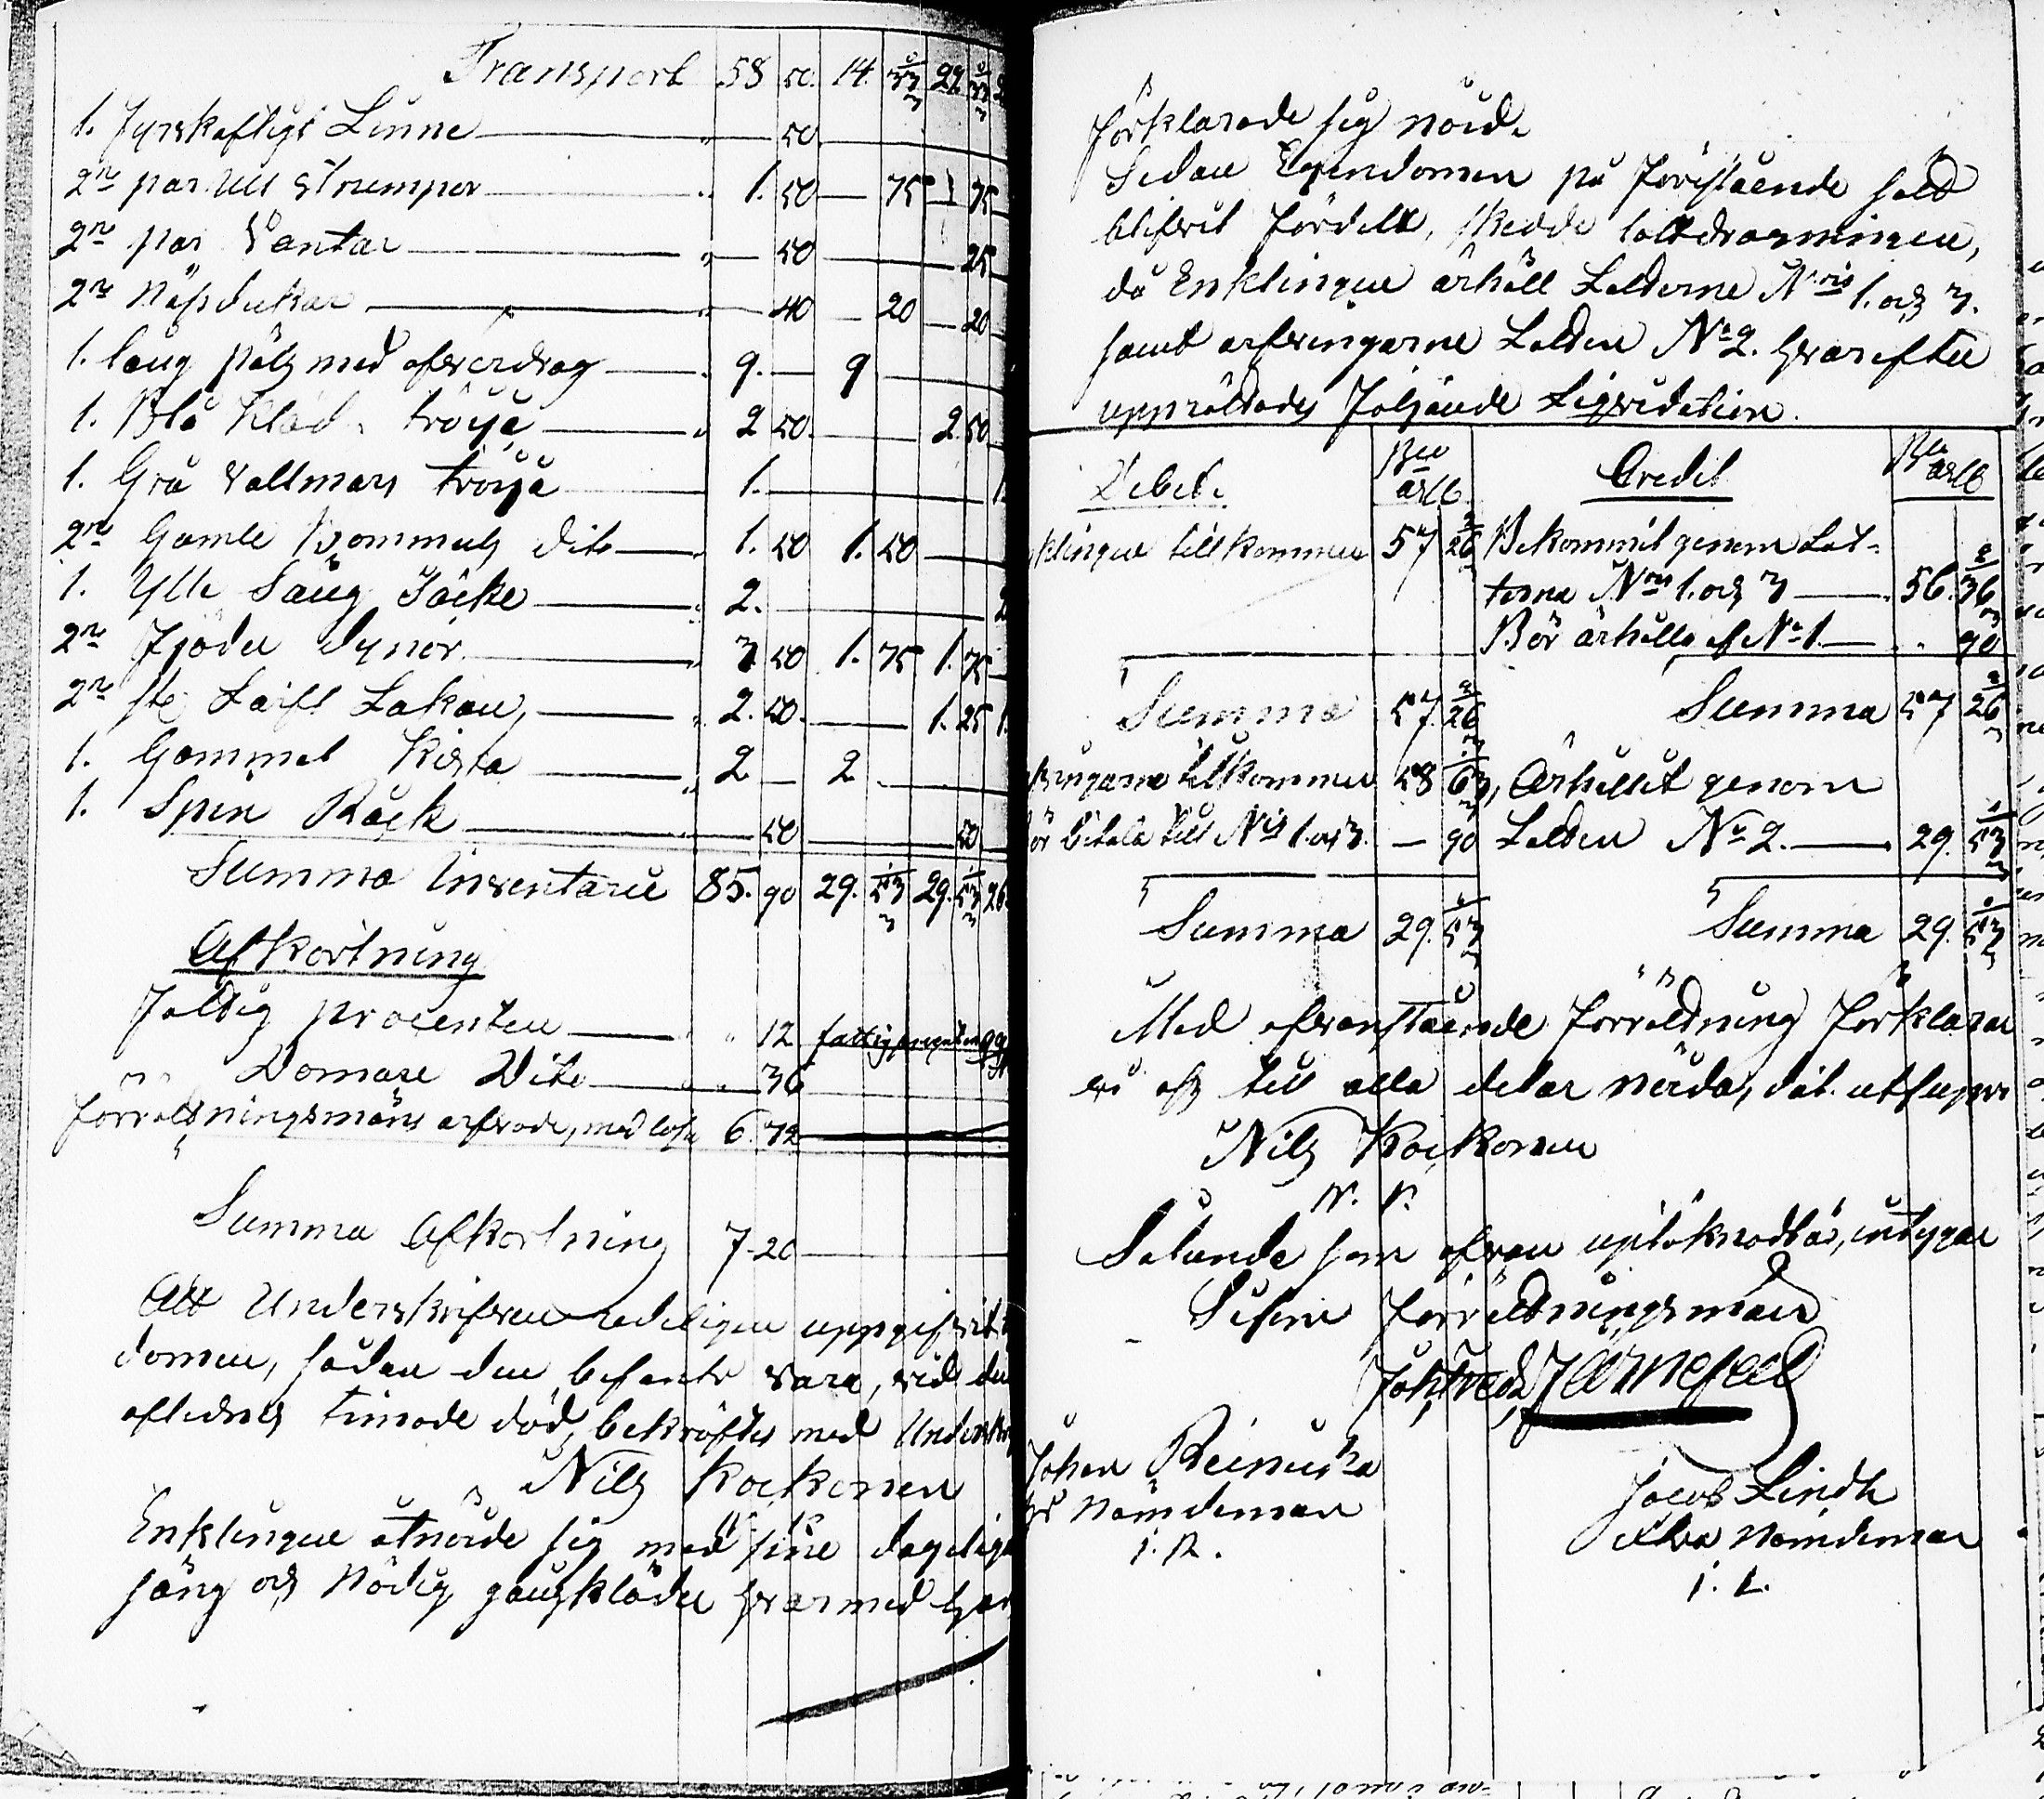 Transport 58 50. 14. 33 29 33
1. Fyrskaftigt Linne " 50
2ne par Ull Strumpor " 1. 50 — 75 — 75
2ne par Vantar " — 50 — 25
2ne Näsdukar " — 40 — 20 — 20
1. lång päls med öfverdrag " 9. — 9
1. Blå Kläd. tröija " 2 50. — 2. 50
1. Grå Vallmars tröija 1. — 1.
2ne Gamle Bommuls dito " 1. 50 1. 50
1. Ylle Säng Täcke " 2. — 2
2ne Fjäder dynor " 3 50 1. 75 1. 75
2ne st: Lärft Lakan, " 2. 50. — 1. 25 1.
1. Gammal Kista " 2 — 2
1. Spin Råck — 50 — 50
Summa Inventarie 85. 90 29. 53 29. 53 26.
Afkortning
Fattig procenten " 12 fattigprocenten
Domare Dito " 36
förrättningsmäns arfvode, med lösn 6. 72
Summa Afkortning 7. 20
Att Underskrifven redeligen uppgifvit
domen, sådan den befants vara, vid den
aflidnes timade död, bekräftes med Underskr
Nils Kockonen
Enklingen åtnöide sig med sine dagelige
säng och Nödig gångkläder hvarmed
förklarade sig nöid.
Sedan Egendomen på förestående sätt
blifvit fördelt, skedde lottdragningen,
då Enklingen ärhöll Lotterne Nris 1. och 3.
samt arfvingarne Lotten No 2. hvarefter
upprättades följande Liqvidation.
Debet. Bco Arll Credit Bco Arll
klingen tillkommer 57 26 Bekommit genom Lot-
terna Nris 1. och 3 — 56. 36
Bör ärhålla af No 1. — " 90
Summa 57. 26 Summa 57 26
vingarne tillkommer 28 63, Ärhållit genom
ör betala till Nris 1. och 3. — 90 Lotten No 2. — 29. 53
Summa 29. 53 Summa 29. 53
Med ofvanstående förrättning förklarar
vi oss till alla delar nöida, dat. utsupra
Nils Kockonen
Salunda som ofvan uptäknadt är, intygar
Johan Reinucka
Nämdeman
Jacob Lindh
Nämdeman